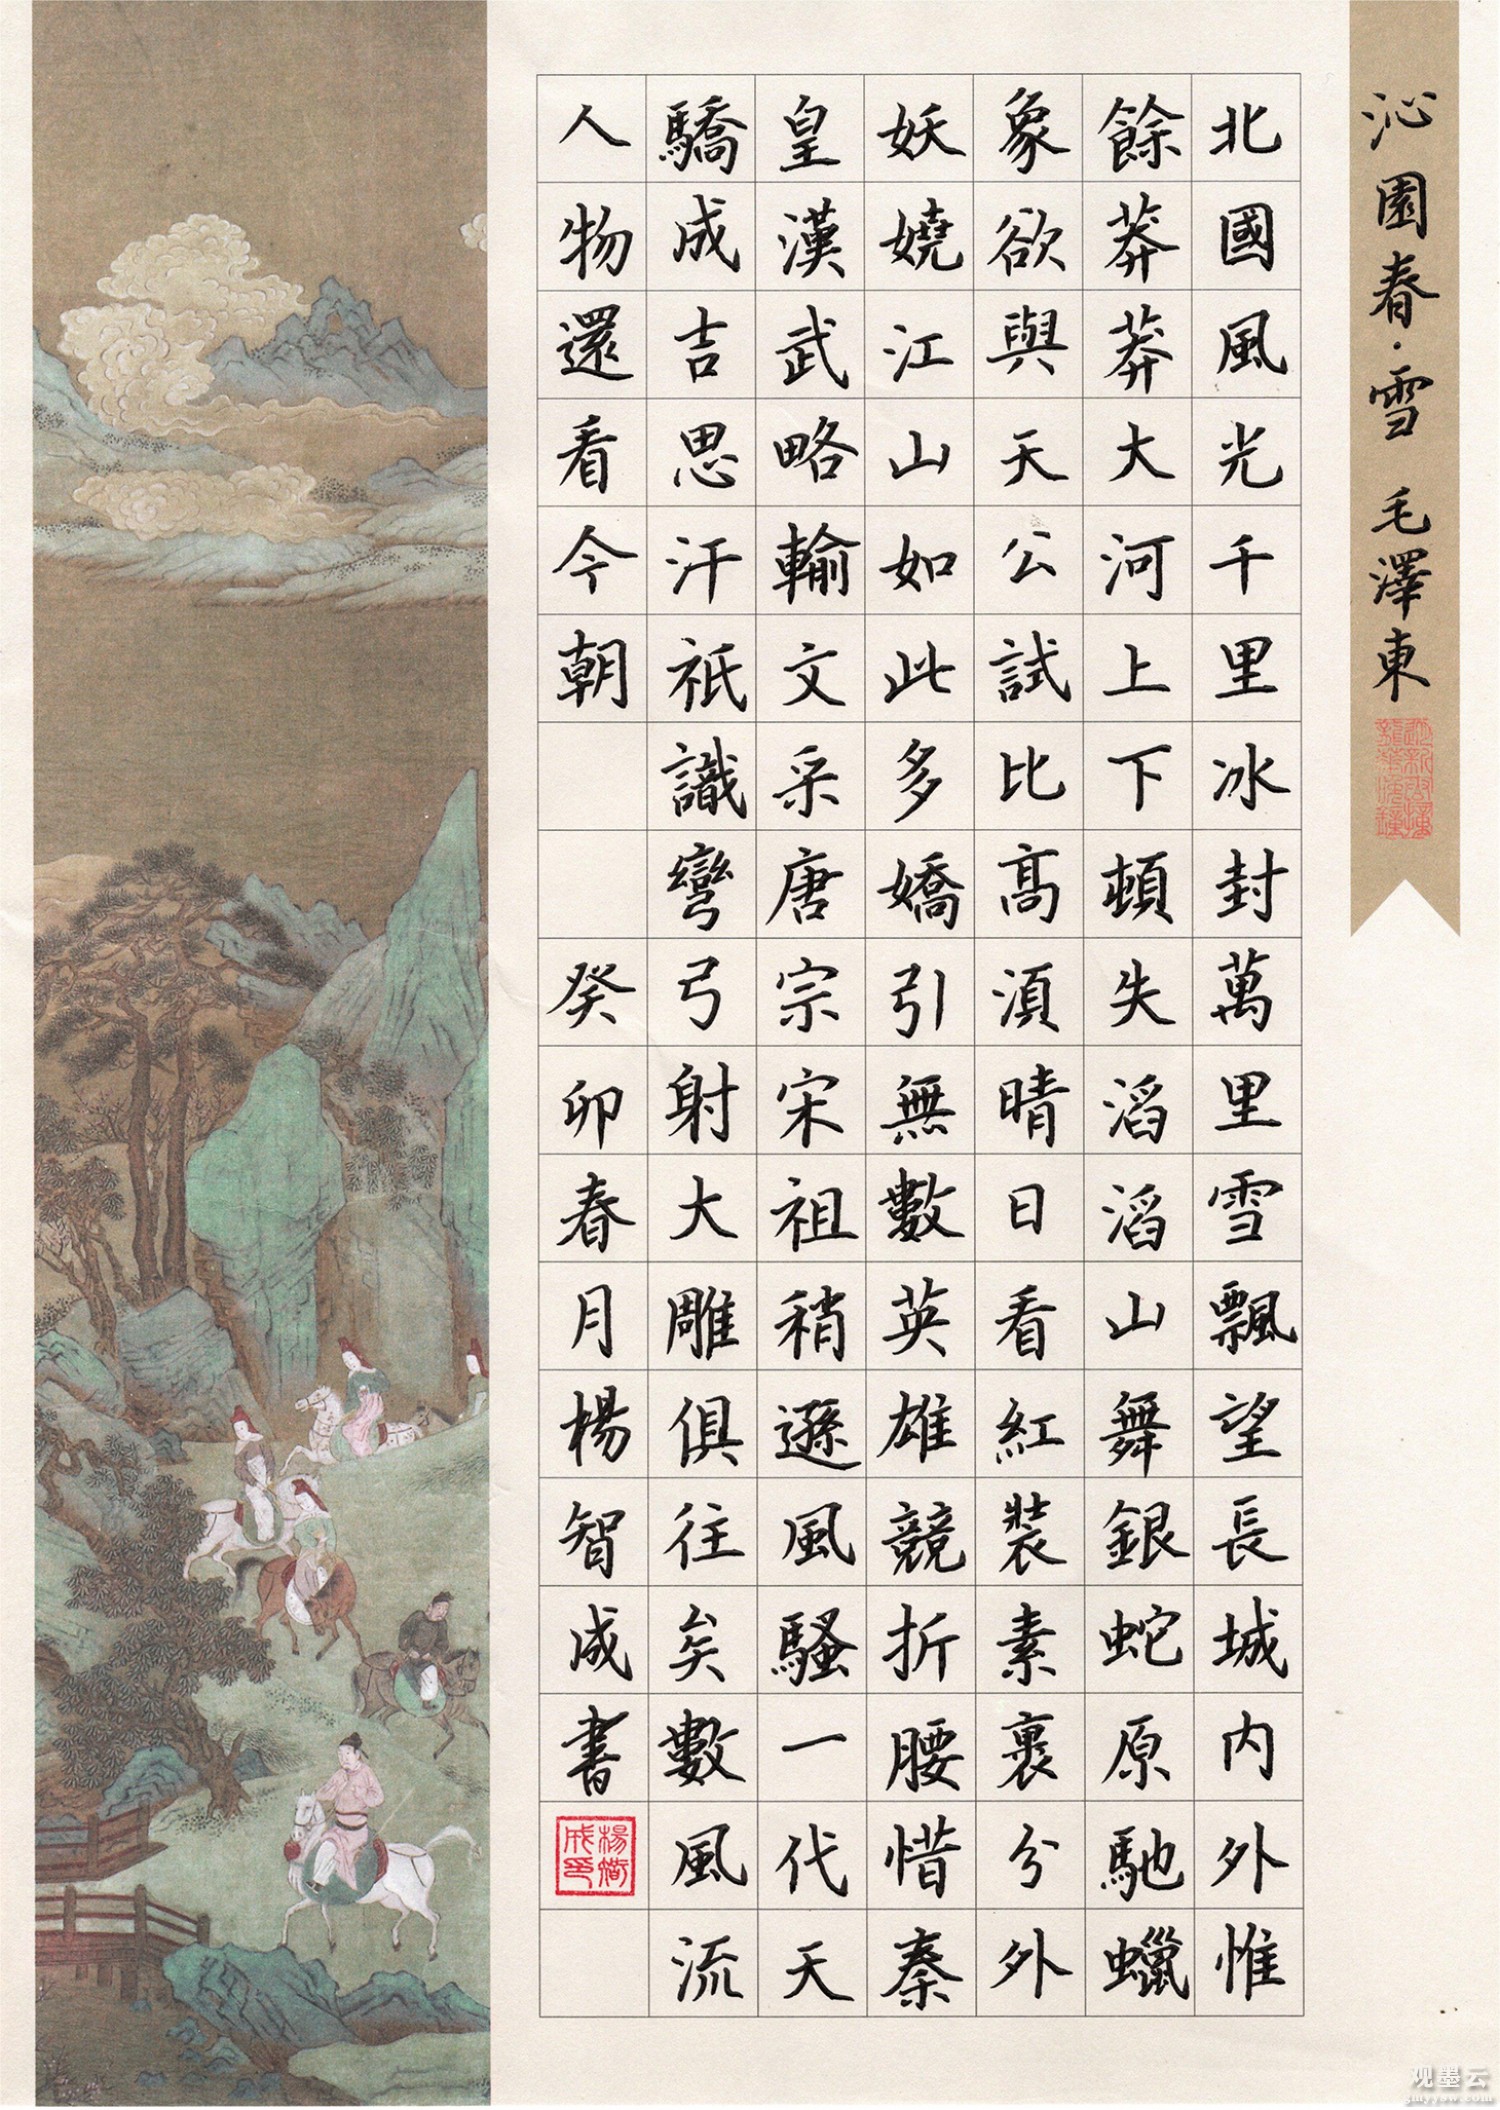 沁園春·雪 毛澤東
北國風光千里冰封萬里雪飄望長城內外惟
餘莽莽大河上下頓失滔滔山舞銀蛇原馳蠟
象欲與天公試比高須晴日看紅裝素裹分外
妖嬈江山如此多嬌引無數英雄競折腰惜秦
皇漢武略輸文采唐宗宋祖稍遜風騷一代天
驕成吉思汗祇識彎弓射大雕俱往矣數風流
人物還看今朝 癸卯春月楊智成書
观墨云
gmyyow.com